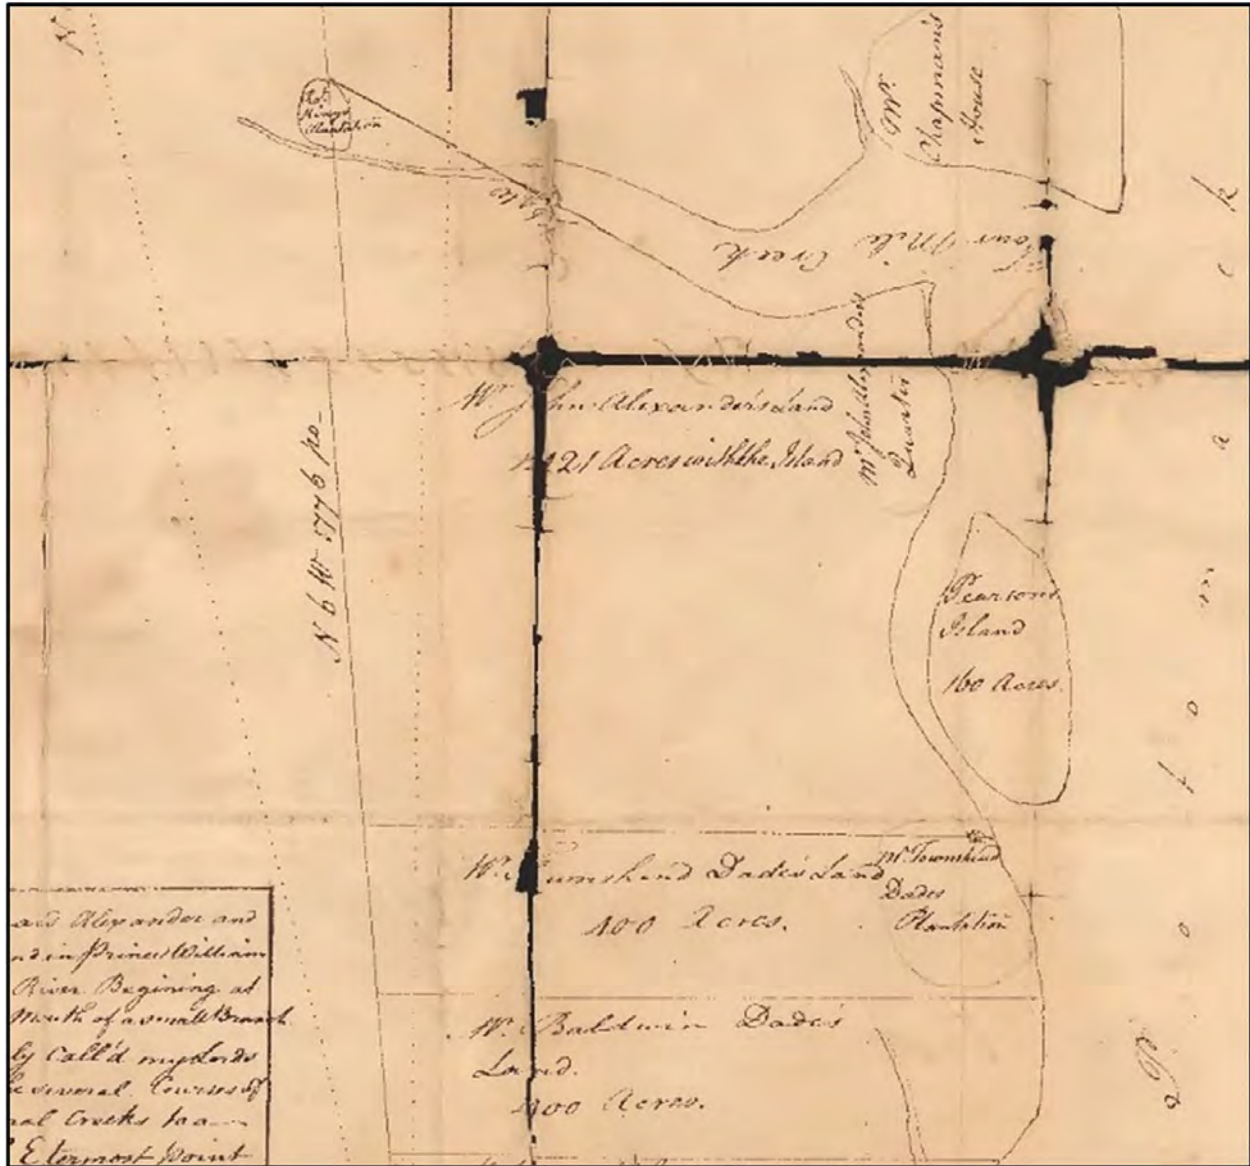 Plantation
Mr.
Chapman's
House
Four Mile Creek
N 6 W 3776 po
Mr. John Alexander's Land
21 Acres with the Island
Mr John Alexanders
Quarter
Pearsons
Island
160 Acres.
Mr. Dade's Land
400 Acres.
Mr. Townshend
Dades
Plantation
Mr. Baldwin Dade's
Land.
400 Acres.
Alexander and
nd in Prince William
River Begining at
Mouth of a small Branch
ly Call'd my Lords
e several Courses of
Creeks to a
Etermost Point
P o t o m a c k